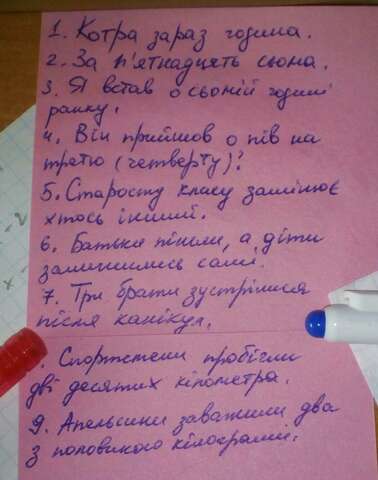 1. Котра зараз година.
2. За п'ятнадцять сьома.
3. Я встав о сьомій годині
ранку.
4. Він прийшов о пів на
третю (четверту)?
5. Старосту класу замінює
хтось інший.
6. Батьки пішли, а діти
залишились самі.
7. Три брати зустрілися
після канікул.
. Спортсмени пробігли
дві десятих кілометра.
9. Апельсини заважили два
з половиною кілограми.